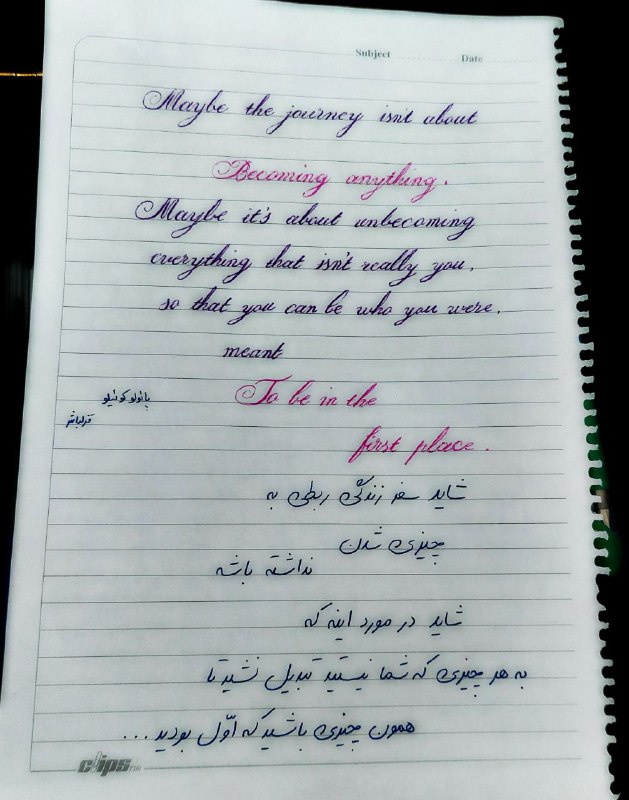 Subject Date
Maybe the journey isn't about
Becoming anything.
Maybe it's about unbecoming
everything that isn't really you,
so that you can be who you were.
meant
To be in the
پائولو کوئیلو
first place.
شاید سفر زندگی ربطی به
چیزی شدن
نداشته باشه
شاید در مورد اینه که
به هر چیزی که شما نیستید تبدیل نشید تا
همون چیزی باشید که اوّل بودید ...
clips